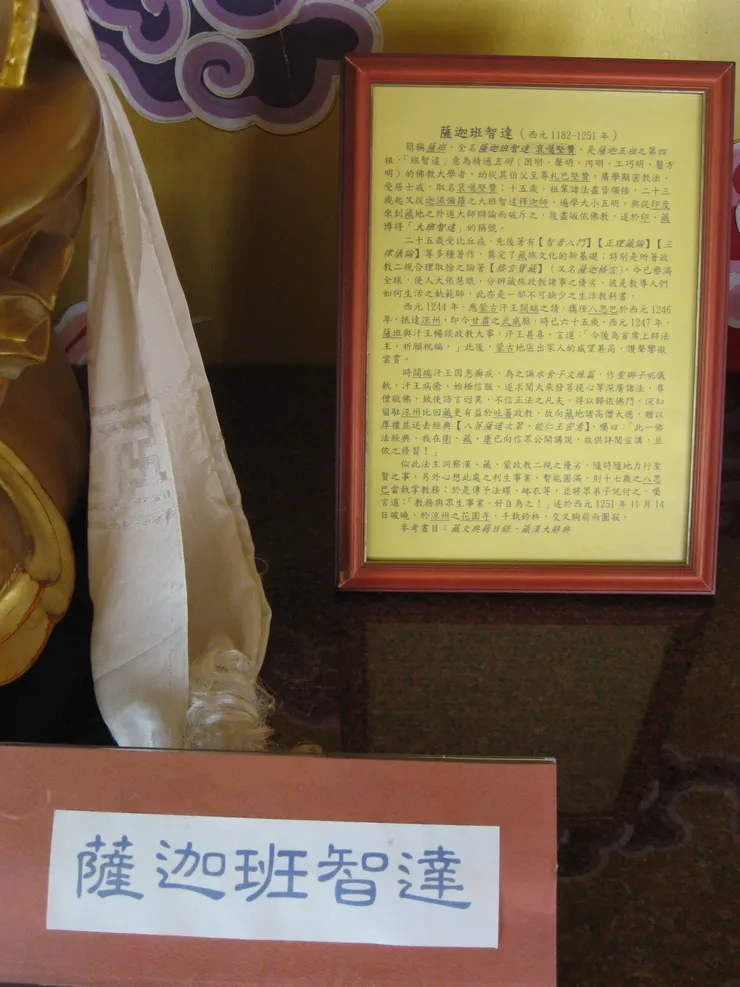 薩迦班智達(西元1182-1251年)
簡稱薩班,全名薩迦班智達 袞噶堅贊,是薩迦五祖之第四
祖,「班智達」意為精通五明(因明、聲明、內明、工巧明、醫方
明)的佛教大學者。幼從其伯父至尊札巴堅贊,廣學顯密教法、
受居士戒,取名袞噶堅贊;十五歲,祖輩諸法盡皆領悟,二十三
歲起又從迦濕彌羅之大班智達釋迦師,遍學大小五明,與從印度
來到藏地之外道大師辯論而破斥之,後盡皈依佛教,遂於印、藏
博得「大班智達」的稱號。
二十五歲受比丘戒,先後著有【智者入門】【正理藏論】【三
律儀論】等多種著作,奠定了藏族文化的新基礎;特別是所著政
教二規合理取捨之論著【格言寶藏】(又名薩迦格言),今已譽滿
全球,使人大張慧眼,分辨藏族政教諸事之優劣,彼是教導人們
如何生活之執範師,此亦是一部不可缺少之生活教科書。
西元1244年,應蒙古汗王闊端之請,攜侄八思巴於西元1246
年,抵達涼州,即今甘肅之武威縣,時已六十五歲。西元1247年,
薩班與汗王暢談政教大事,汗王甚喜,言道:「今後為首席上師法
主,祈願祝福。」此後,蒙古地區出家人的威望甚高,讚聲響徹
雲霄。
時闊端汗王因患癩疾,為之誦水食子文殊篇,作聖獅子吼儀
軌,汗王病癒,始極信服,遂求聞大乘發菩提心等深廣諸法,尊
僧敬佛,致使語言迥異,不信正法之凡夫,得以歸依佛門。深知
留駐涼州比回藏更有益於吐蕃政教,故向藏地諸高僧大德,贈以
厚禮並送去經典【八菩薩道次第、能仁王密意】,囑曰:「此一佛
法經典,我在衛、藏、康已向信眾公開講說,故供詳閱宣講,並
依之修習!」
似此法主洞察漢、藏、蒙政教二規之優劣,隨時隨地力行聖
賢之事,另外心想此處之利生事業,暫能圓滿,則十七歲之八思
巴當執掌教務;於是傳予法螺、缽衣等,並將眾弟子託付之,囑
言道:「教務與眾生事業,好自為之!」遂於西元1251年11月14
日破曉,於涼州之花園寺,手執鈴杵,交叉胸前而圓寂。
參考書目:藏文典籍目錄、藏漢大辭典
薩迦班智達